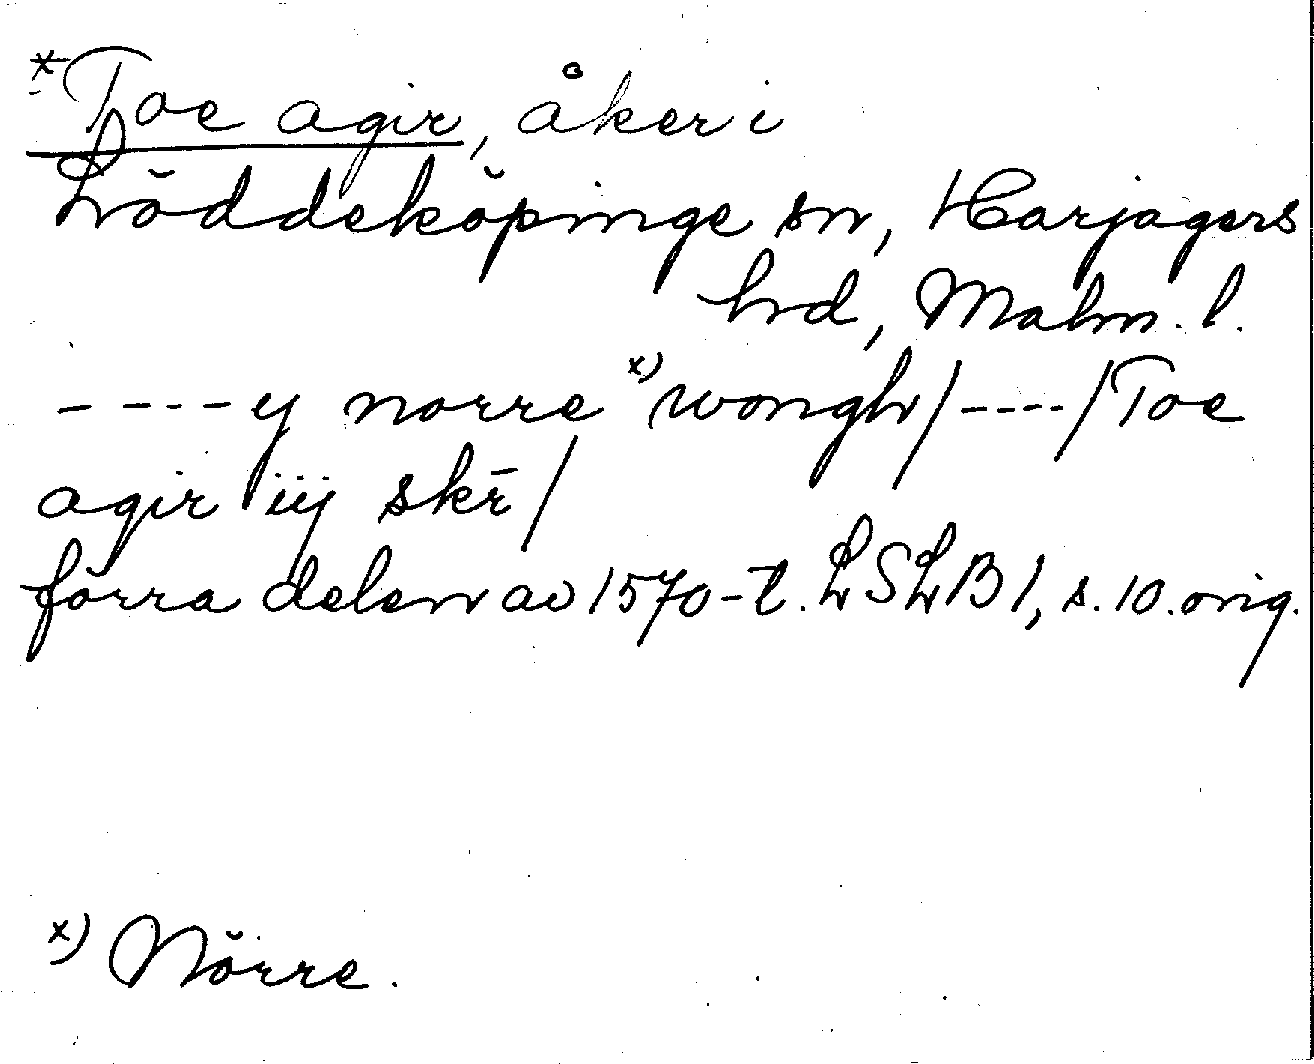 *Toe agir, åker i
Löddeköpinge sn, Harjagers
hd, Malm. l.
----y norre x) wongh/----/Toe
agir iij skr̄/
förra delen av 1570-t. LSLB 1, s. 10. orig.
x) Nörre.